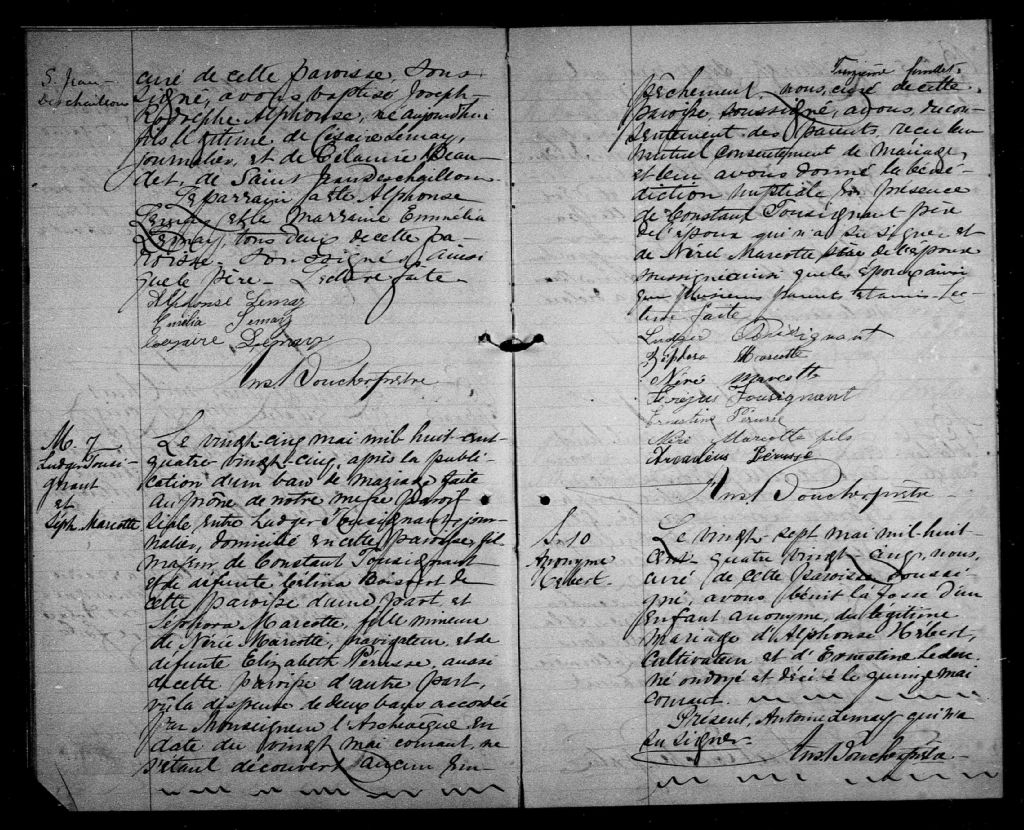 S. Jean-
Deschaillons
curé de cette paroisse, sous
signé, avons baptisé Joseph
Rodolphe Alphonse, né aujourd'hui
fils légitime de Césaire Lemay,
journalier, et de Célanire Beau-
det, de Saint Jean Deschaillons
Le parrain a été Alphonse
Lemay et la marraine Emmélia
Lemay, tous deux de cette pa-
roisse. Soussignés, ainsi
que le père. Lecture faite.
Alphonse Lemay
Emélia Lemay
Cezaire Lemay
Ans. Boucher ptre
M. 7
Ludger Tousi-
gnant
et
Séph. Marcotte
Le vingt-cinq mai mil huit cent-
quatre-vingt-cinq, après la publi-
cation d'un ban de mariage faite
au prône de notre messe parois-
siale, entre Ludger Tousignant, jour-
nalier, domicilié en cette paroisse, fils
majeur de Constant Tousignant
et de défunte Célina Boisvert de
cette paroisse d'une part, et
Sephora Marcotte, fille mineure
de Nérée Marcotte, navigateur, et de
défunte Elizabeth Perusse, aussi
de cette paroisse d'autre part,
vu la dispense de deux bans accordée
par Monseigneur l'Archevêque en
date du vingt mai courant, ne
s'étant découvert aucun em-
Treizième feuillet.
pêchement, nous, curé de cette
paroisse, soussigné, avons, du con-
sentement des parents, reçu leur
mutuel consentement de mariage
et leur avons donné la béné-
diction nuptiale en présence
de Constant Tousignant père
de l'époux qui n'a su signer et
de Néré Marcotte père de l'épouse
soussigné ainsi que les époux ainsi
que plusieurs parents et amis. Lec-
ture faite
Ludger Tousignant
Séphora Marcotte
Néré Marcotte
Tousignant
Ernestine Pérusse
Néré Marcotte fils
Amadéus Pérusse
Ans. Boucher ptre
S. 10
Anonyme
Hébert.
Le vingt-sept mai mil-huit-
cent quatre vingt-cinq, nous,
curé de cette paroisse, soussi-
gné, avons bénit la fosse d'un
enfant anonyme, du légitime
mariage d'Alphonse Hébert,
cultivateur et d'Ernestine Leden,
né ondoyé et décédé le quinze mai
courant.
Présent, Antoine Lemay qui n'a
su signer.
Ans. Boucher ptre